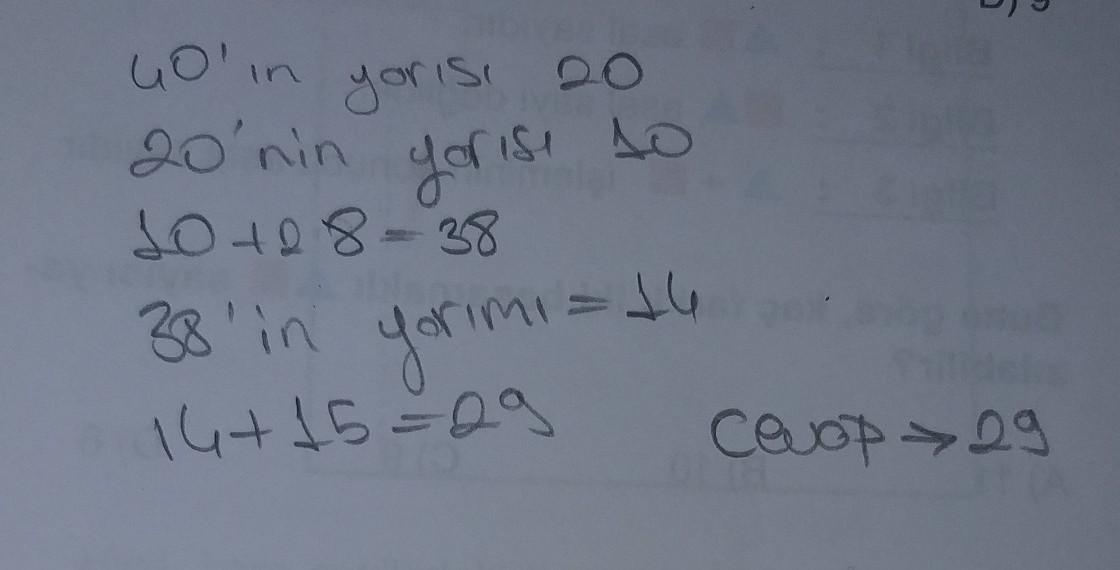 40'ın yarısı 20
20'nin yarısı 10
10+28=38
38'in yarımı=14
14+15=29
Cevap→29